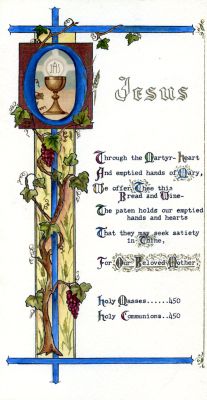 Jesus
Through the Martyr-Heart
And emptied hands of Mary,
We offer Thee this
Bread and Wine-
The paten holds our emptied
hands and hearts
That they may seek satiety
in Thine,
For Our Beloved Mother
Holy Masses......450
Holy Communions..450